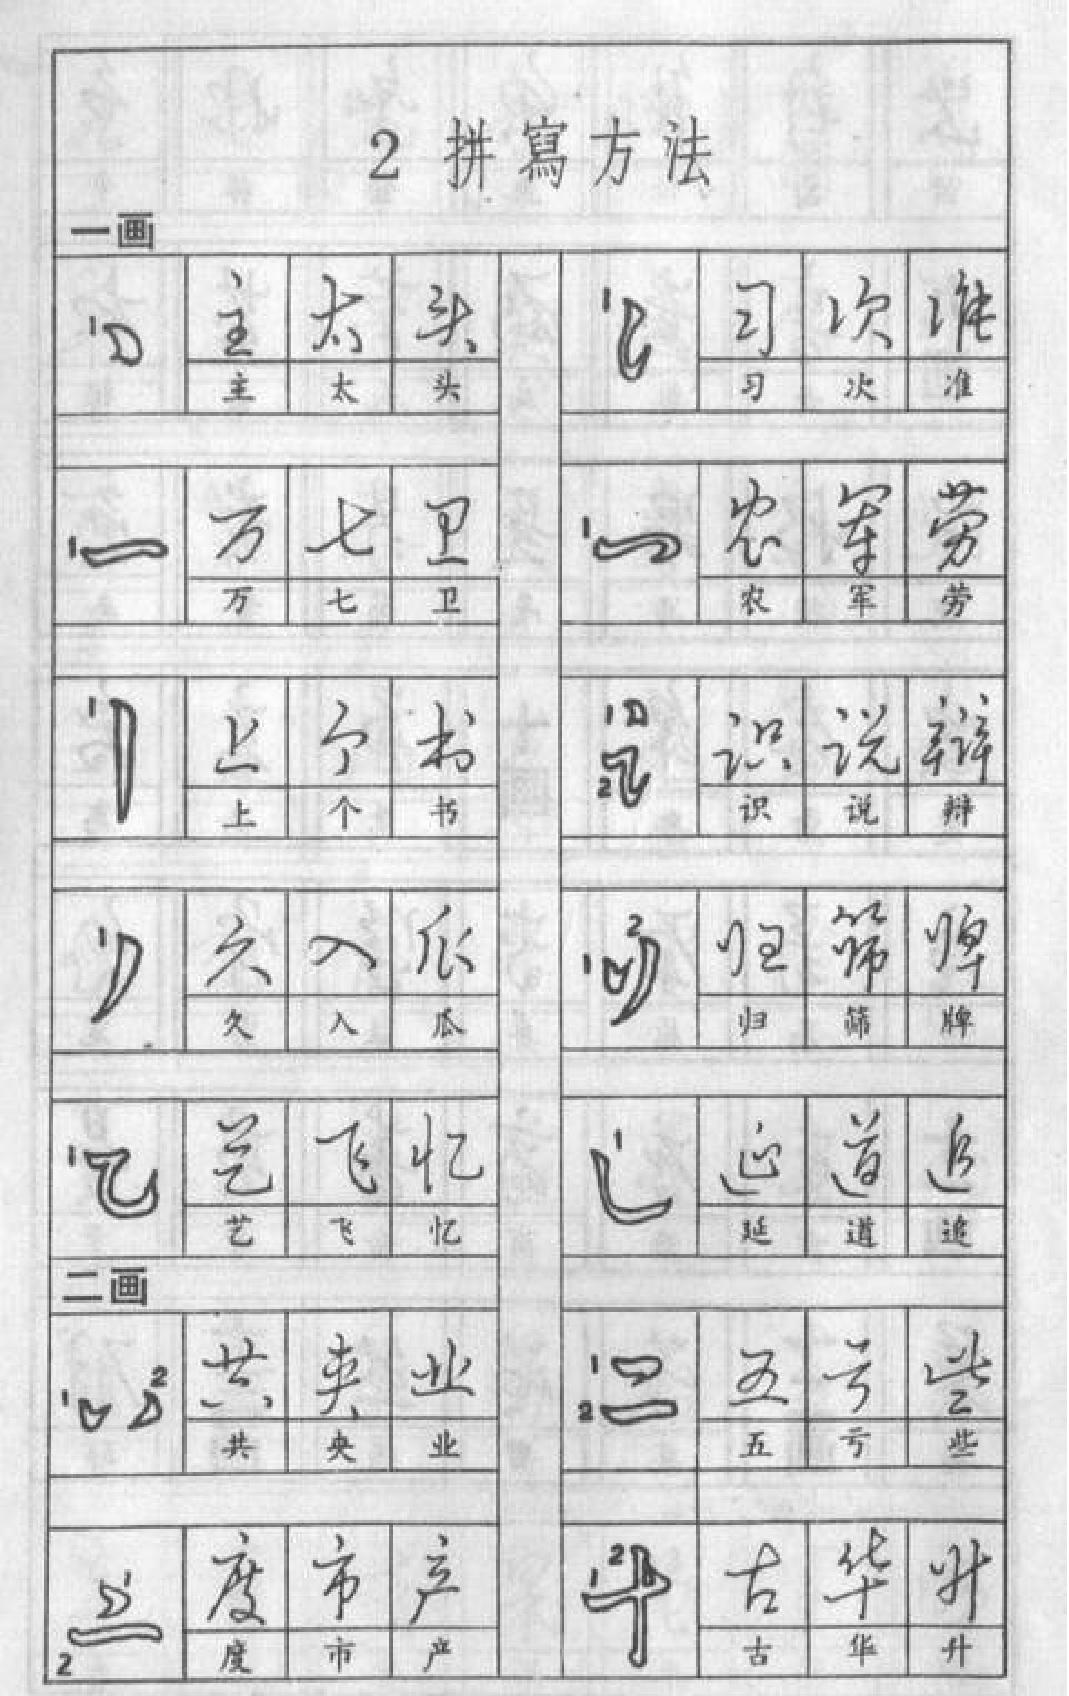 2 拼寫方法
一画
1 主 太 头 1 习 次 准
主 太 头 习 次 准
1 万 七 卫 1 农 军 劳
万 七 卫 农 军 劳
1 上 个 书 1 2 识 说 辩
上 个 书 识 说 辩
1 久 入 瓜 1 2 归 筛 牌
久 入 瓜 归 筛 牌
1 艺 飞 忆 1 延 道 追
艺 飞 忆 延 道 追
二画
1 2 共 央 业 1 2 五 亏 些
共 央 业 五 亏 些
1 2 度 市 产 1 2 古 华 升
度 市 产 古 华 升